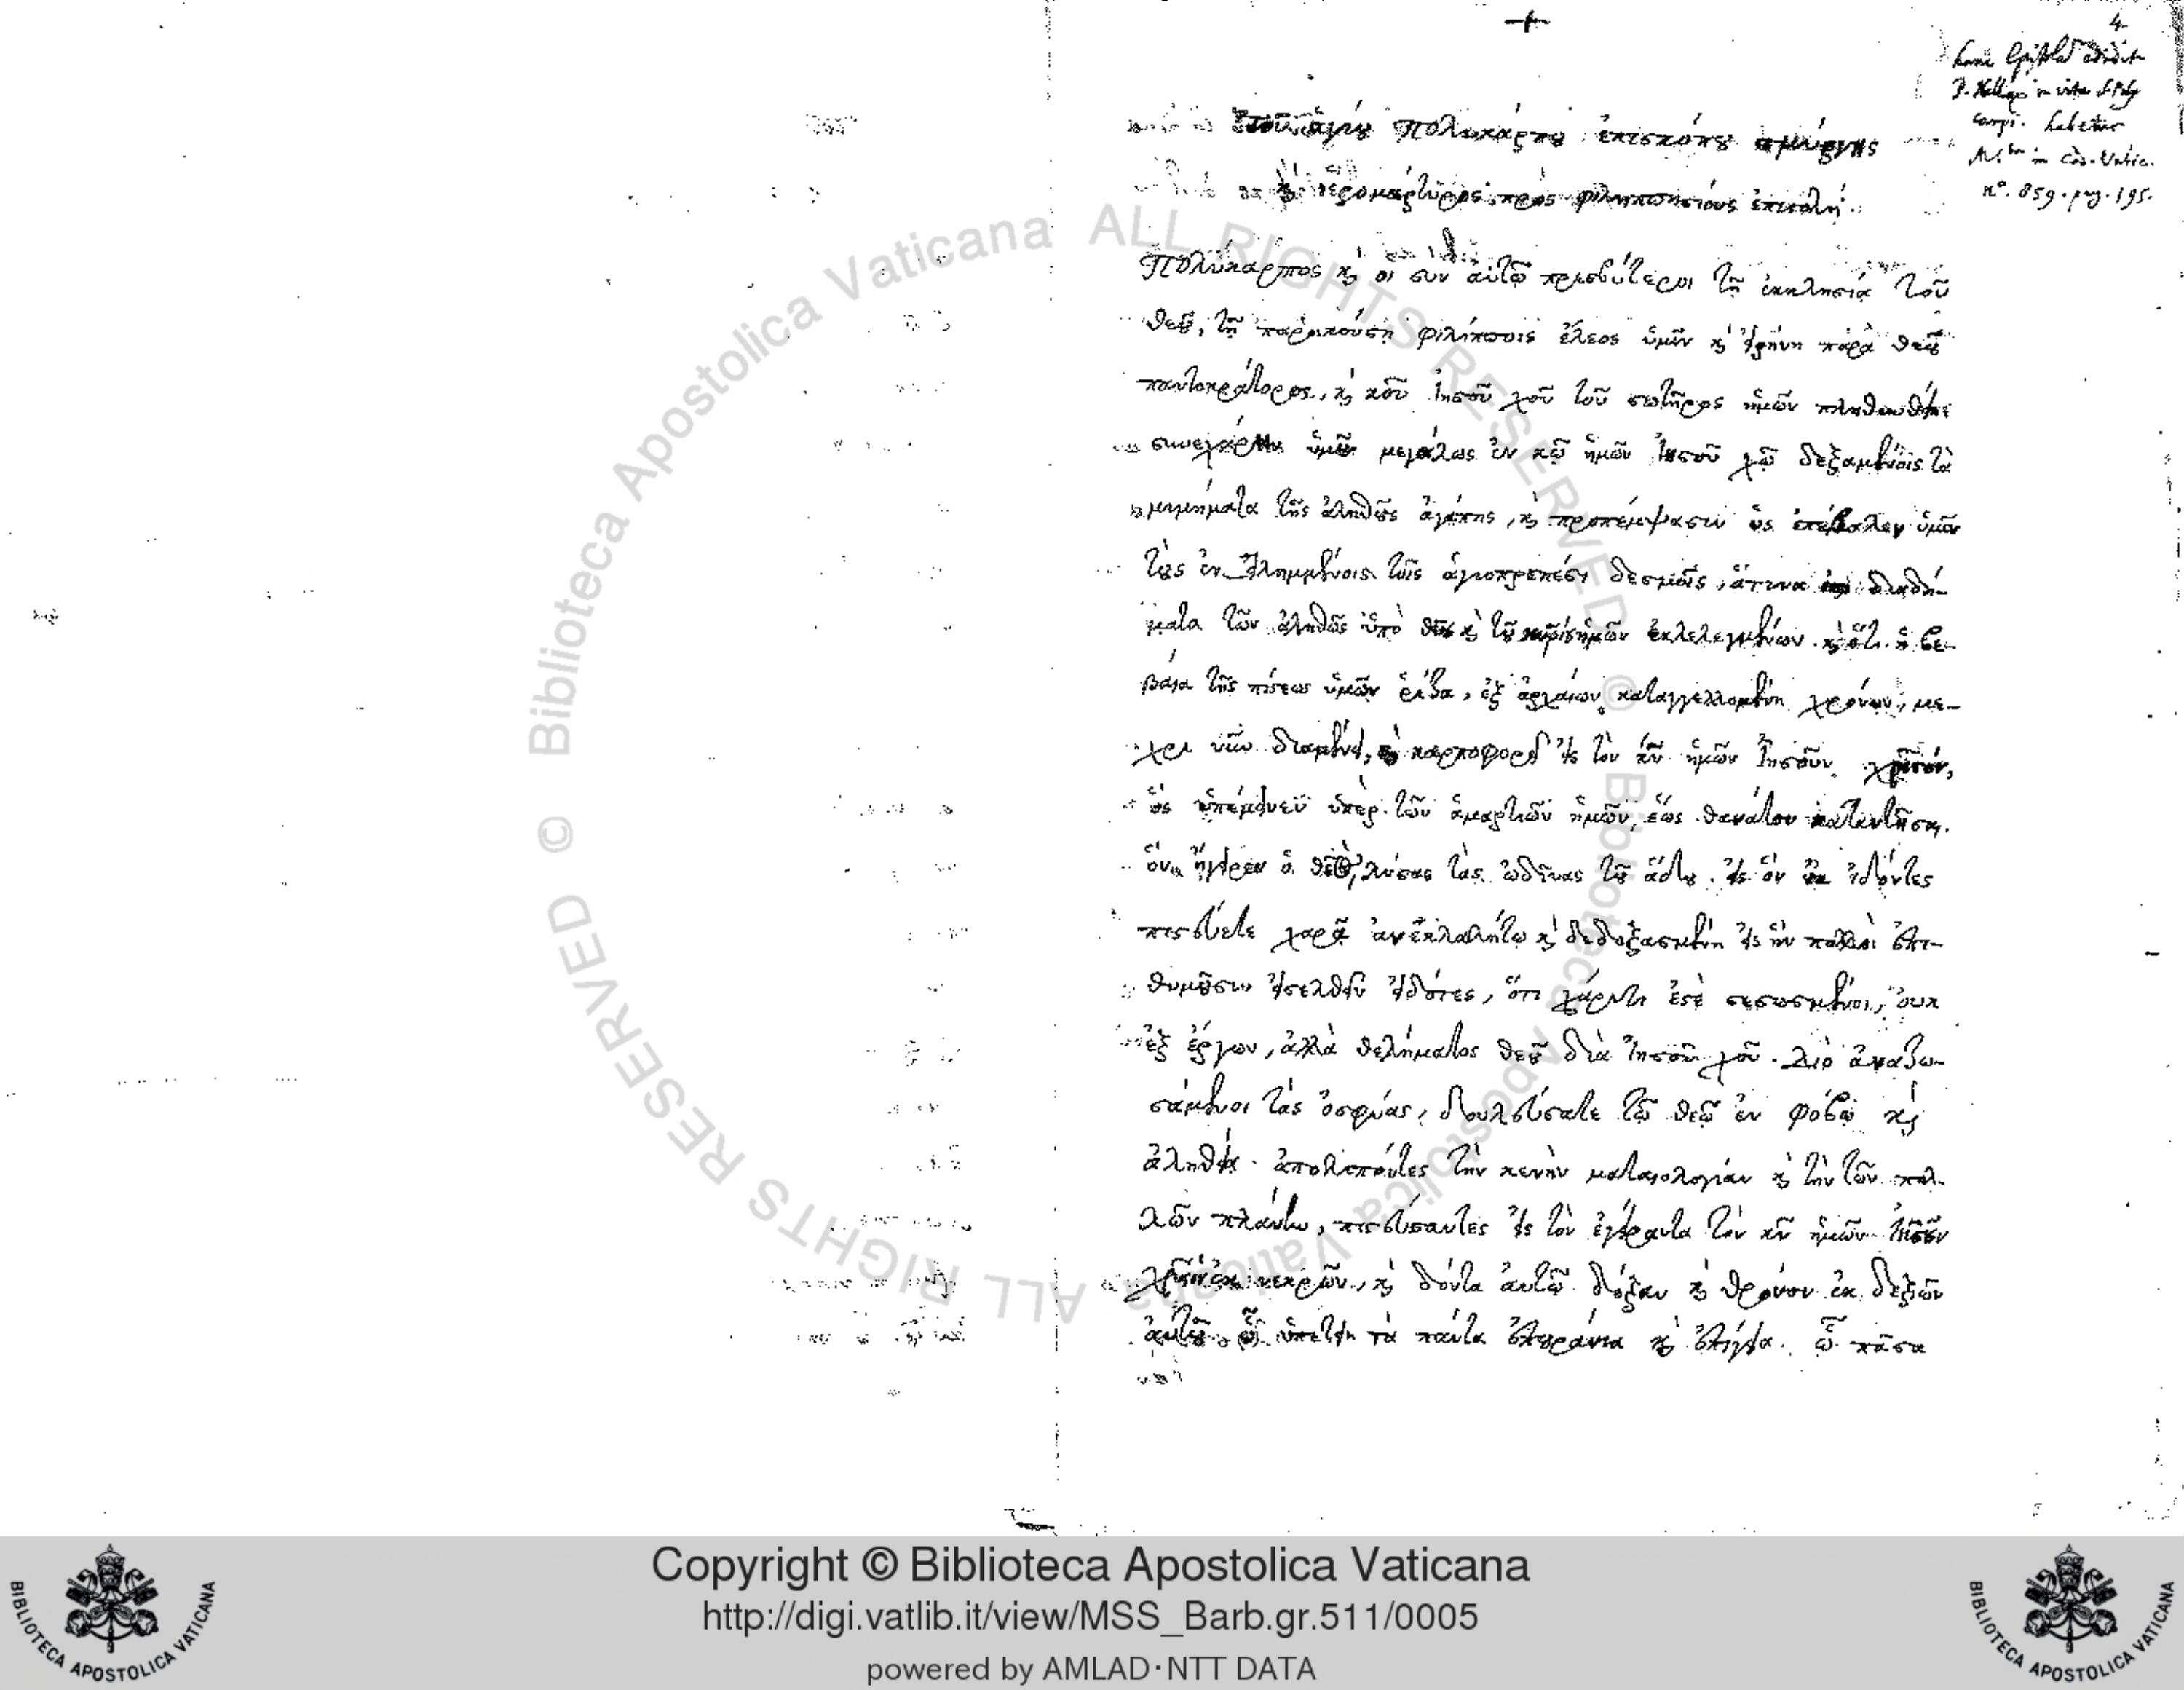 4
hanc Epistolã edidit
P. Halloix in vita S. Poly
carpi. habetur
in Cod. Vatic.
nº. 859. pag. 195.
Τοῦ ἁγίου Πολυκάρπου ἐπισκόπου σμύρνης
κὶ ἱερομάρτυρος πρὸς φιλιππησίους ἐπιστολή.
Πολύκαρπος κὶ οἱ συν ἀυτῷ πρεσβύτεροι τῇ ἐκκλησίᾳ τοῦ
θεοῦ, τῇ παροικούσῃ φιλίπποις ἔλεος ὑμῖν κὶ εἰρήνη παρὰ θεοῦ
παντοκράτορος, κὶ κῦ Ἰησοῦ χοῦ τοῦ σωτῆρος ἡμῶν πληθυνθείη
συνεχάρην ὑμῖν μεγάλως ἐν κῷ ἡμῶν Ἰησοῦ χῷ δεξαμένοις τὰ
μιμήματα τῆς ἀληθοῦς ἀγάπης, κὶ προπέμψασιν ὡς ἐπέβαλεν ὑμῖν
τοὺς ἐνειλημμένοις τοῖς ἁγιοπρεπέσι δεσμοῖς, ἅτινα διαδή-
ματα τῶν ἀληθῶς ὑπὸ θεοῦ κὶ τοῦ κυρίου ἡμῶν ἐκλελεγμένων. κὶ ὅτι ἡ βε-
βαία τῆς πίστεως ὑμῶν ῥίζα, ἐξ ἀρχαίων καταγγελλομένη χρόνων, με-
χρι νῦν διαμένει, κὶ καρποφορεῖ εἰς τὸν κν ἡμῶν Ἰησοῦν χριστόν,
ὃς ὑπέμεινεν ὑπὲρ τῶν ἁμαρτιῶν ἡμῶν, ἕως θανάτου καταντῆσαι.
ὃν ἤγειρεν ὁ θεὸς, λύσας τὰς ὠδῖνας τοῦ ᾅδου. εἰς ὃν οὐκ ἰδόντες
πιστεύετε χαρᾷ ἀνεκλαλήτῳ κὶ δεδοξασμένῃ εἰς ἣν πολλοὶ ἐπι-
θυμοῦσιν εἰσελθεῖν εἰδότες, ὅτι χάριτι ἐστὲ σεσωσμένοι, οὐκ
ἐξ ἔργων, ἀλλὰ θελήματος θεοῦ διὰ Ἰησοῦ χοῦ. Διὸ ἀναζω-
σάμενοι τὰς ὀσφύας, δουλεύσατε τῷ θεῷ ἐν φόβῳ κὶ
ἀληθείᾳ. ἀπολιπόντες τὴν κενὴν ματαιολογίαν κὶ τὴν τῶν πολ-
λῶν πλάνην, πιστεύσαντες εἰς τὸν ἐγείραντα τὸν κν ἡμῶν Ἰησοῦν
χριστὸν ἐκ νεκρῶν, κὶ δόντα ἀυτῷ δόξαν κὶ θρόνον ἐκ δεξιῶν
ἀυτοῦ. ᾧ ὑπετάγη τὰ πάντα ἐπουράνια κὶ ἐπίγεια. ᾧ πᾶσα
Copyright © Biblioteca Apostolica Vaticana
http://digi.vatlib.it/view/MSS_Barb.gr.511/0005
powered by AMLAD·NTT DATA
BIBLIOTECA APOSTOLICA VATICANA
BIBLIOTECA APOSTOLICA VATICANA
© Biblioteca Apostolica Vaticana ALL RIGHTS RESERVED © Biblioteca Apostolica Vaticana ALL RIGHTS RESERVED